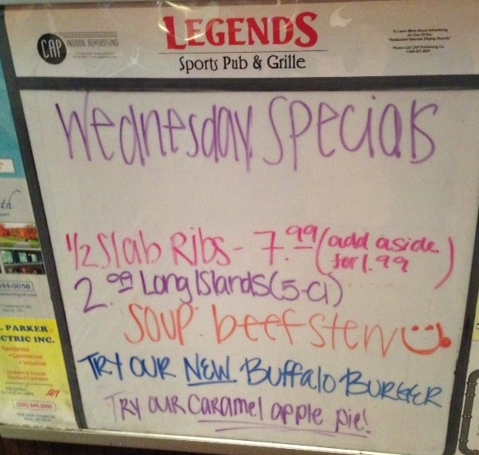 CAP INDOOR ADVERTISING
LEGENDS
Sports Pub & Grille
Wednesday Specials
1/2 Slab Ribs - 7.99 (add a side for 1.99)
2.99 Long Islands (5-cl)
Soup: beef stew
TRY OUR NEW Buffalo BURGER
TRY OUR Caramel apple pie!
PARKER
CTRIC INC.
Residential
• Commercial
• Industrial